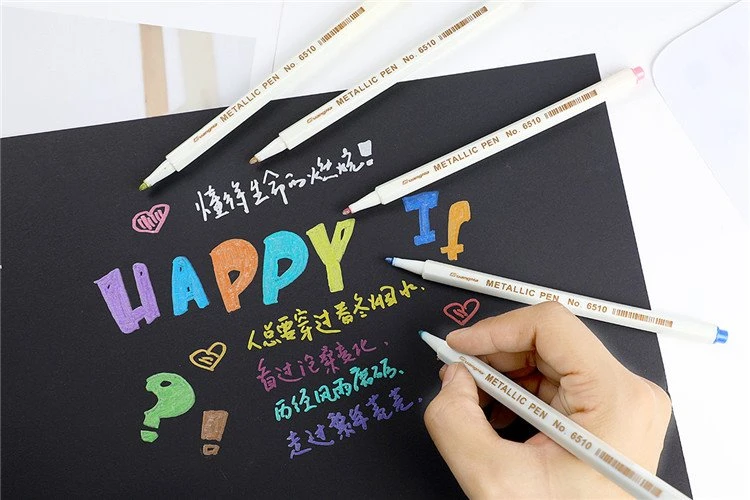 METALLIC PEN No. 6510
METALLIC PEN No. 6510
METALLIC PEN No. 6510
懂得生命的燃烧!
HAPPY If
METALLIC PEN No. 6510
人总要穿过冬烟水.
看过沧桑变化,
历经风雨磨砺,
走过繁华
? !
METALLIC PEN No. 6510